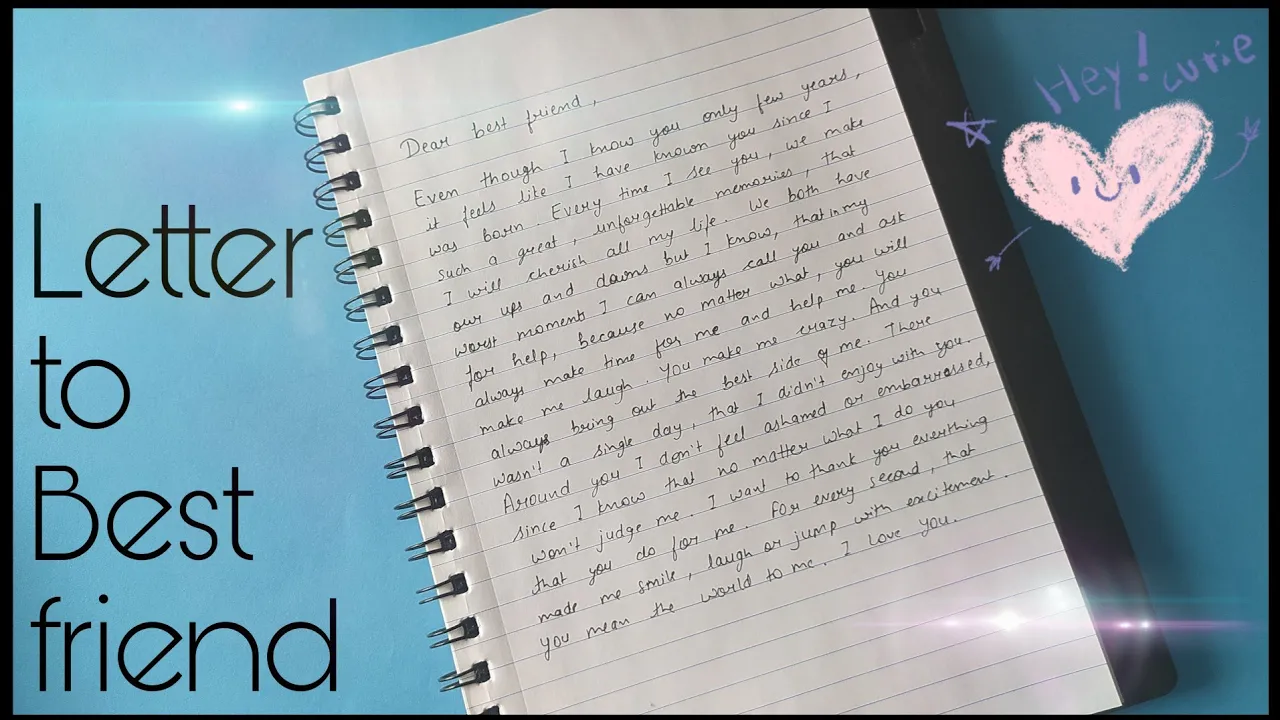 Letter
to
Best
friend
Dear best friend,
Even though I know you only few years,
it feels like I have known you since I
was born. Every time I see you, we make
such a great, unforgettable memories, that
I will cherish all my life. We both have
our ups and downs but I know, that in my
worst moments I can always call you and ask
for help, because no matter what, you will
always make time for me and help me. You
make me laugh. You make me crazy. And you
always bring out the best side of me. There
wasn't a single day, that I didn't enjoy with you.
Around you I don't feel ashamed or embarrassed,
since I know that no matter what I do you
won't judge me. I want to thank you everthing
that you do for me. For every second, that
made me smile, laugh or jump with excitement.
You mean the world to me. I love you.
Hey! curie